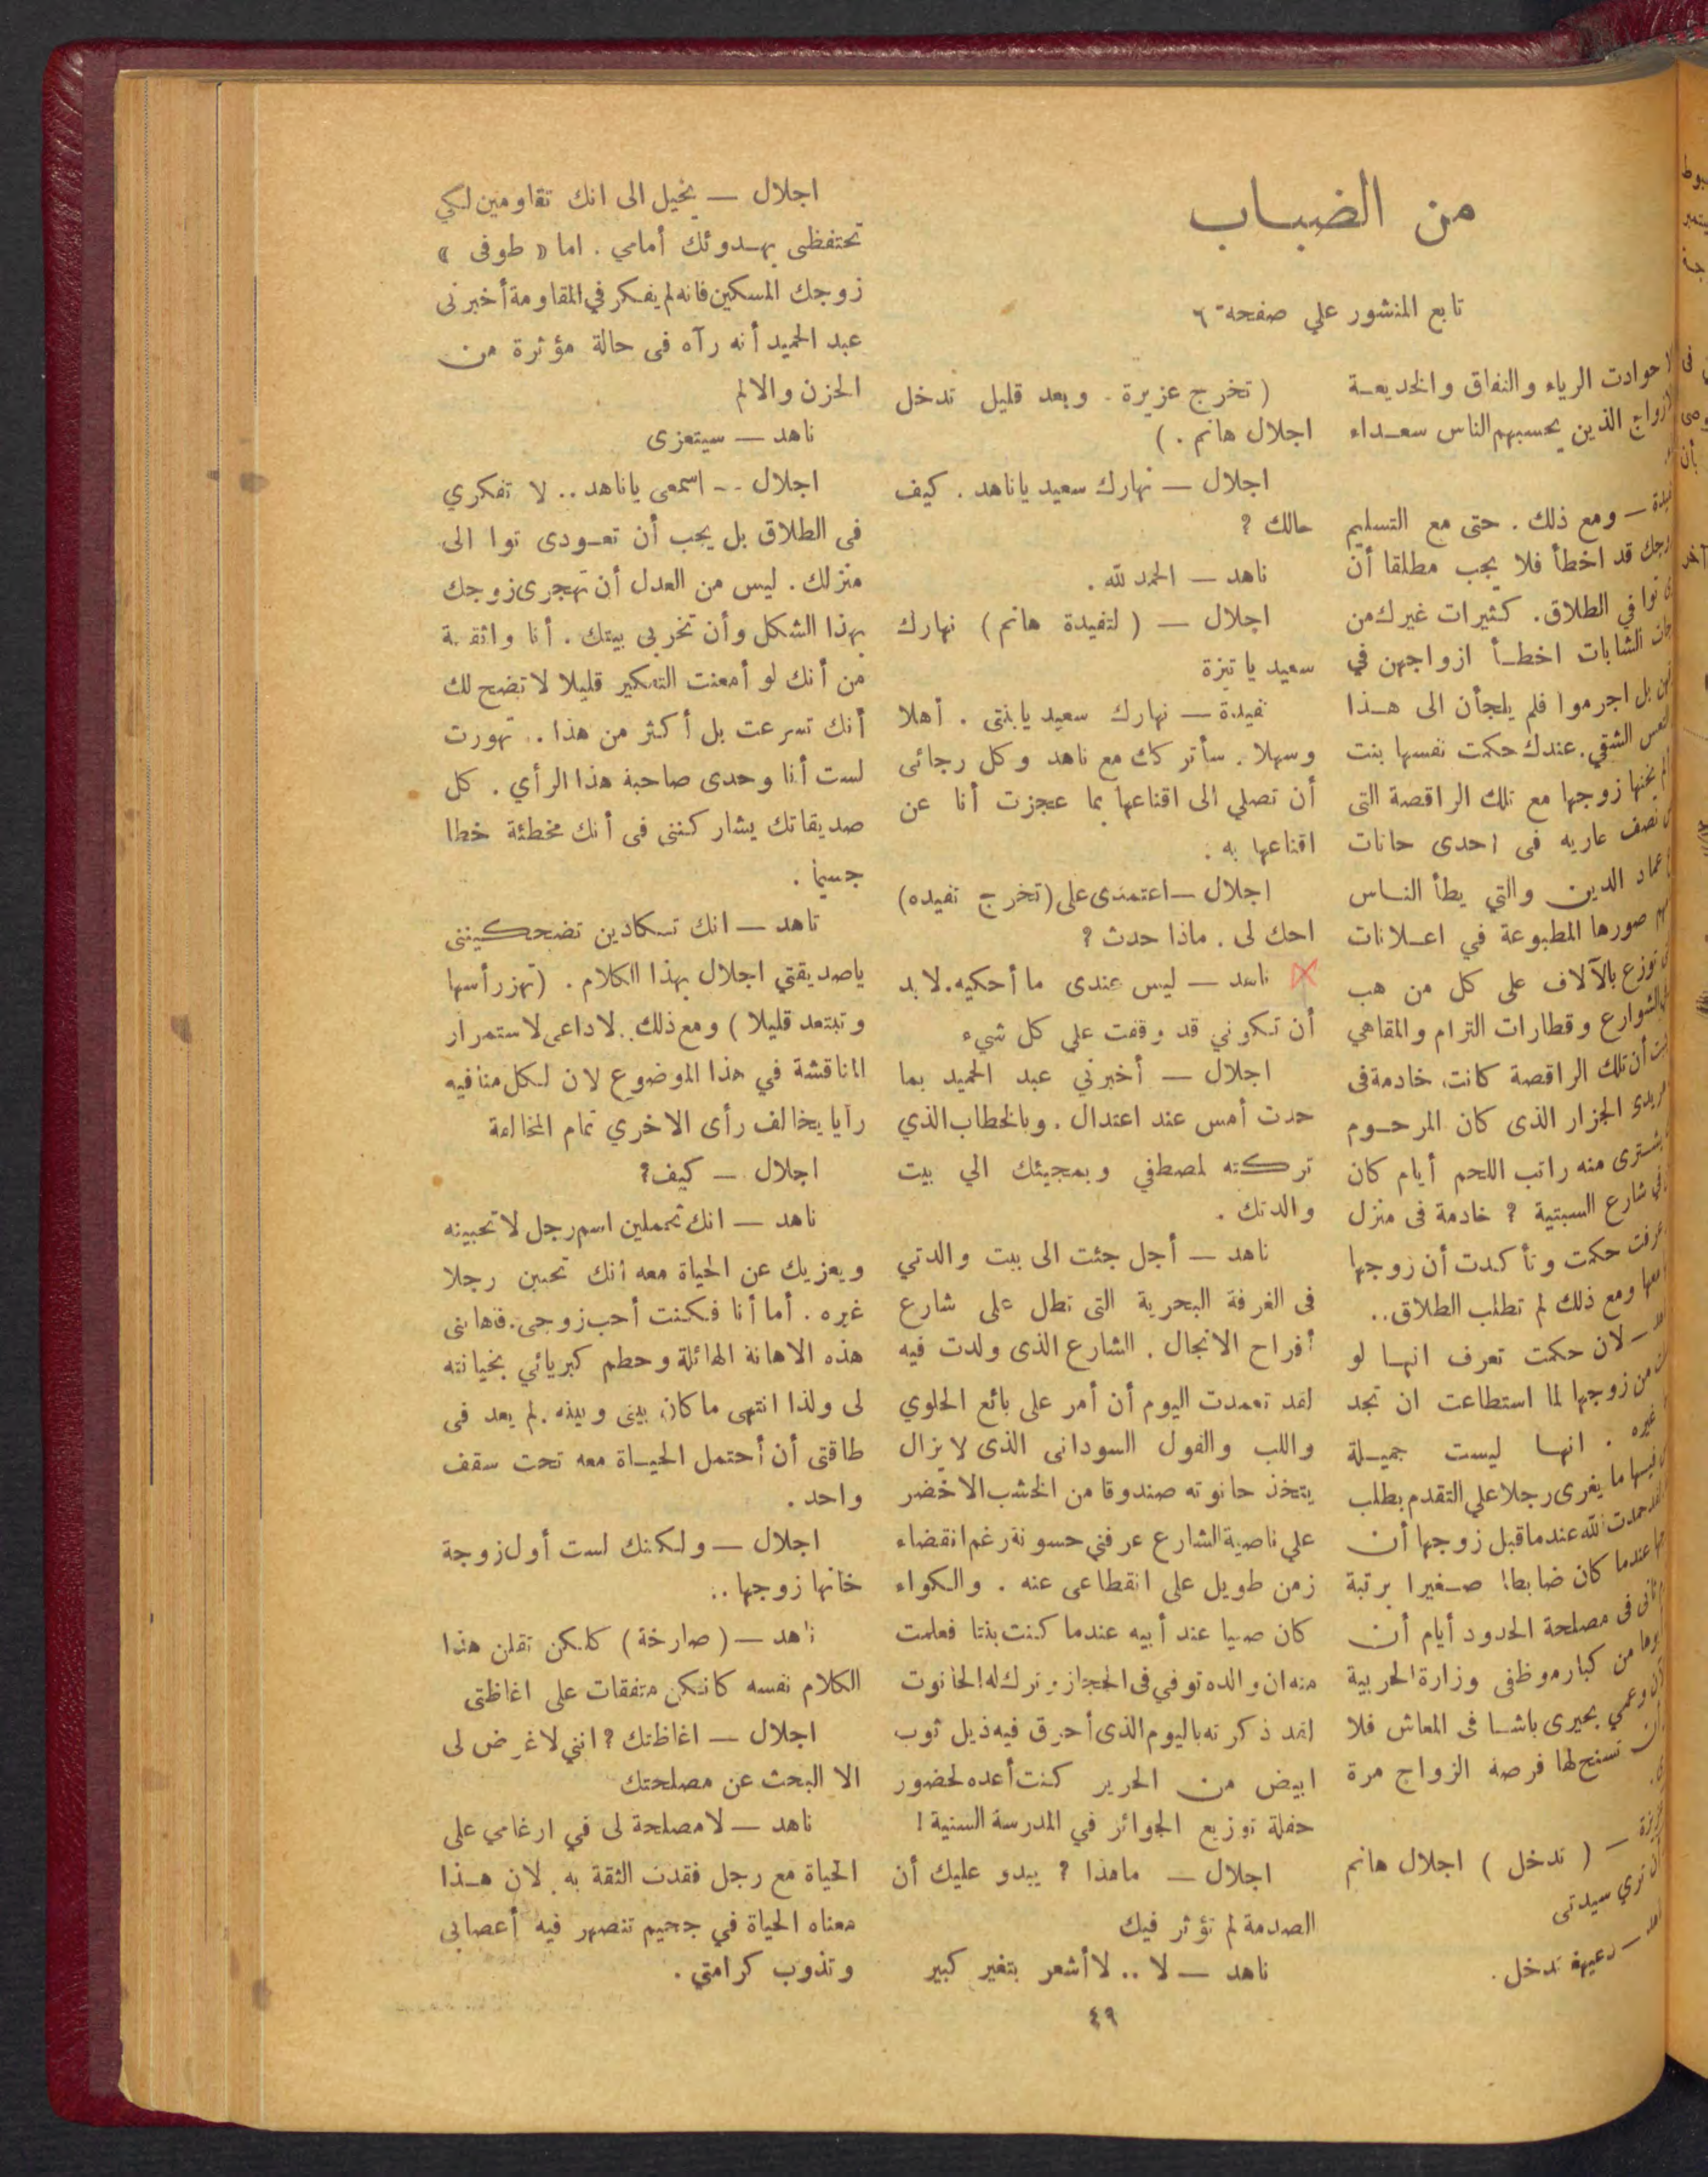 من الضباب
تابع المنشور علي صفحة ٦
حوادت الرياء والنفاق والخديعة
الازواج الذين يحسبهم الناس سعداء
ومع ذلك . حتى مع التسليم
قد اخطأ فلا يجب مطلقا أن
توا في الطلاق . كثيرات غيرك من
الشابات اخطأ ازواجهن في
بل اجرموا فلم يلجأن الى هذا
الشقي . عندك حكمت نفسها بنت
يخنها زوجها مع تلك الراقصة التى
نصف عاريه فى احدى حانات
عماد الدين والتي يطأ الناس
صورها المطبوعة في اعلانات
توزع بالآلاف على كل من هب
الشوارع وقطارات الترام والمقاهي
أن تلك الراقصة كانت خادمة فى
الجزار الذى كان المرحوم
يشترى منه راتب اللحم أيام كان
في شارع السبتية ؟ خادمة فى منزل
عرفت حكمت وتأكدت أن زوجها
ومع ذلك لم تطلب الطلاق ..
— لان حكمت تعرف انها لو
من زوجها لما استطاعت ان تجد
غيره . انها ليست جميلة
فيها ما يغرى رجلا علي التقدم بطلب
حمدت الله عندما قبل زوجها أن
عندما كان ضابطا صغيرا برتبة
ثانى فى مصلحة الحدود أيام أن
من كبار موظفى وزارة الحربية
وعمي بحيرى باشا فى المعاش فلا
تسنح لها فرصة الزواج مرة
— ( تدخل ) اجلال هانم
أن تري سيدتى
— دعيها تدخل .
( تخرج عزيزة . وبعد قليل تدخل
اجلال هانم . )
اجلال — نهارك سعيد ياناهد . كيف
حالك ؟
ناهد — الحمد لله .
اجلال — ( لتفيدة هانم ) نهارك
سعيد يا تيزة
تفيدة — نهارك سعيد يابنتى . أهلا
وسهلا . سأتركك مع ناهد وكل رجائى
أن تصلي الى اقناعها بما عجزت أنا عن
اقناعها به .
اجلال — اعتمدى على ( تخرج تفيده )
احك لى . ماذا حدث ؟
ناهد — ليس عندى ما أحكيه . لا بد
أن تكوني قد وقفت علي كل شيء
اجلال — أخبرني عبد الحميد بما
حدث أمس عند اعتدال . وبالخطاب الذي
تركته لمصطفي وبمجيئك الي بيت
والدتك .
ناهد — أجل جئت الى بيت والدتي
فى الغرفة البحرية التى تطل على شارع
أفراح الانجال . الشارع الذى ولدت فيه
لقد تعمدت اليوم أن أمر على بائع الحلوي
واللب والفول السودانى الذى لا يزال
يتخذ حانوته صندوقا من الخشب الاخضر
علي ناصية الشارع عرفني حسونة رغم انقضاء
زمن طويل على انقطاعى عنه . والكواء
كان صبيا عند أبيه عندما كنت بنتا فعلمت
منه ان والده توفي في الحجاز وترك له الحانوت
لقد ذكرته باليوم الذى أحرق فيه ذيل ثوب
ابيض من الحرير كنت أعده لحضور
حفلة توزيع الجوائز في المدرسة السنية !
اجلال — ماهذا ؟ يبدو عليك أن
الصدمة لم تؤثر فيك
ناهد — لا .. لا أشعر بتغير كبير
اجلال — يخيل الى انك تقاومين لكي
تحتفظى بهدوئك أمامي . اما « طوفى »
زوجك المسكين فانه لم يفكر في المقاومة أخبرنى
عبد الحميد أنه رآه فى حالة مؤثرة من
الحزن والالم
ناهد — سيتعزى
اجلال -- اسمعى ياناهد .. لا تفكري
فى الطلاق بل يجب أن تعودى توا الى
منزلك . ليس من العدل أن تهجرى زوجك
بهذا الشكل وأن تخربى بيتك . أنا واثقة
من أنك لو أمعنت التفكير قليلا لاتضح لك
أنك تسرعت بل أكثر من هذا .. تهورت
لست أنا وحدى صاحبة هذا الرأي . كل
صديقاتك يشاركننى فى أنك مخطئة خطا
جسيما .
ناهد — انك تسكادين تضحكيننى
ياصديقتي اجلال بهذا الكلام . ( تهز رأسها
وتبتعد قليلا ) ومع ذلك . لاداعى لاستمرار
المناقشة في هذا الموضوع لان لكل منا فيه
رايا يخالف رأى الاخري تمام المخالفة
اجلال — كيف ؟
ناهد — انك تحملين اسم رجل لا تحبينه
ويعزيك عن الحياة معه انك تحبين رجلا
غيره . أما أنا فكنت أحب زوجى . فأهاننى
هذه الاهانة الهائلة وحطم كبريائي بخيانته
لى ولذا انتهى ماكان بينى وبينه . لم يعد فى
طاقتى أن أحتمل الحياة معه تحت سقف
واحد .
اجلال — ولكنك لست أول زوجة
خانها زوجها ..
ناهد — ( صارخة ) كلكن تقلن هذا
الكلام نفسه كانكن متفقات على اغاظتى
اجلال — اغاظتك ؟ انني لا غرض لى
الا البحث عن مصلحتك
ناهد — لا مصلحة لى في ارغامي على
الحياة مع رجل فقدت الثقة به . لان هذا
معناه الحياة في جحيم تنصهر فيه أعصابى
وتذوب كرامتي .
٤٩